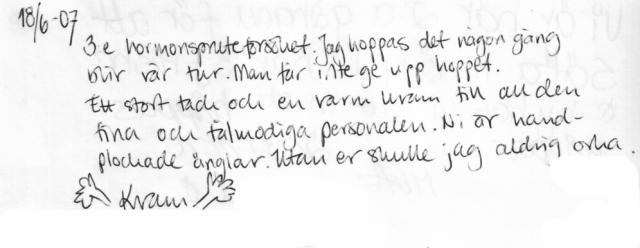 18/6-07
3:e hormonspruteförsöket. Jag hoppas det någon gång
blir vår tur. Man får inte ge upp hoppet.
Ett stort tack och en varm kram till all den
fina och tålmodiga personalen. Ni är hand-
plockade änglar. Utan er skulle jag aldrig orka.
Kram